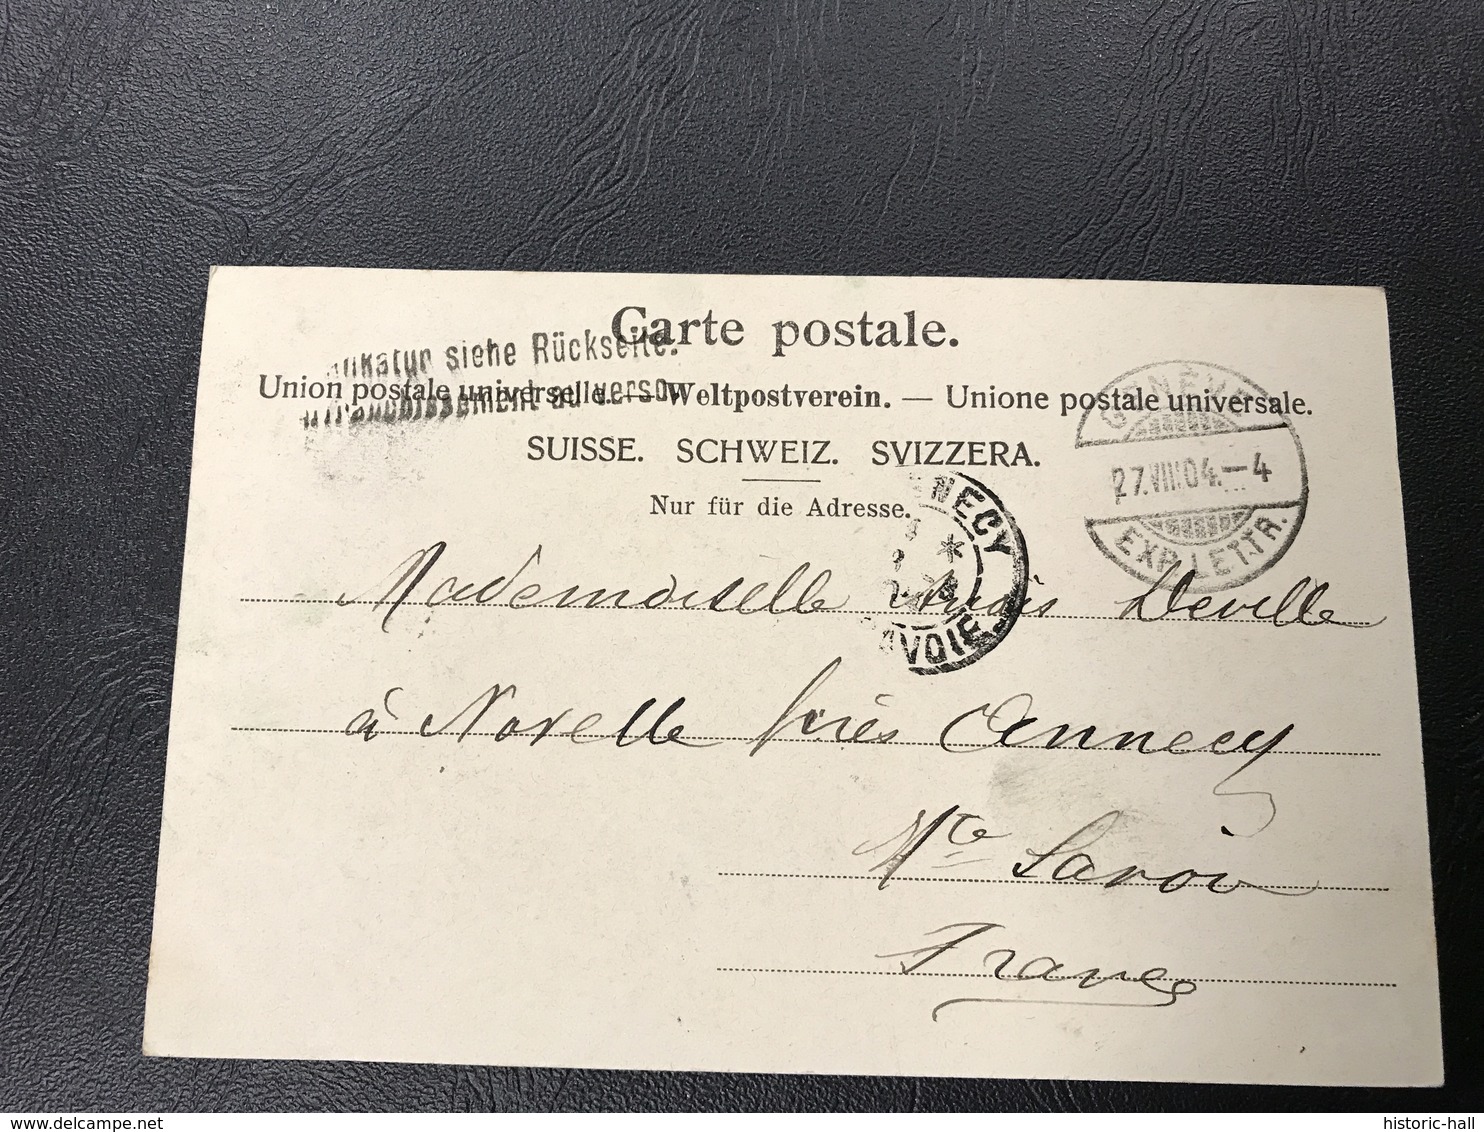 Carte postale.
siehe Rückseite.
Affranchissement au verso
Union postale universelle. — Weltpostverein. — Unione postale universale.
SUISSE. SCHWEIZ. SVIZZERA.
Nur für die Adresse.
GENÈVE
27.VIII.04.–4
EXP. LETTR.
NNECY
AVOIE
Mademoiselle Anaïs Deville
à Novelle près Annecy
Hte Savoie
France
historic-hall